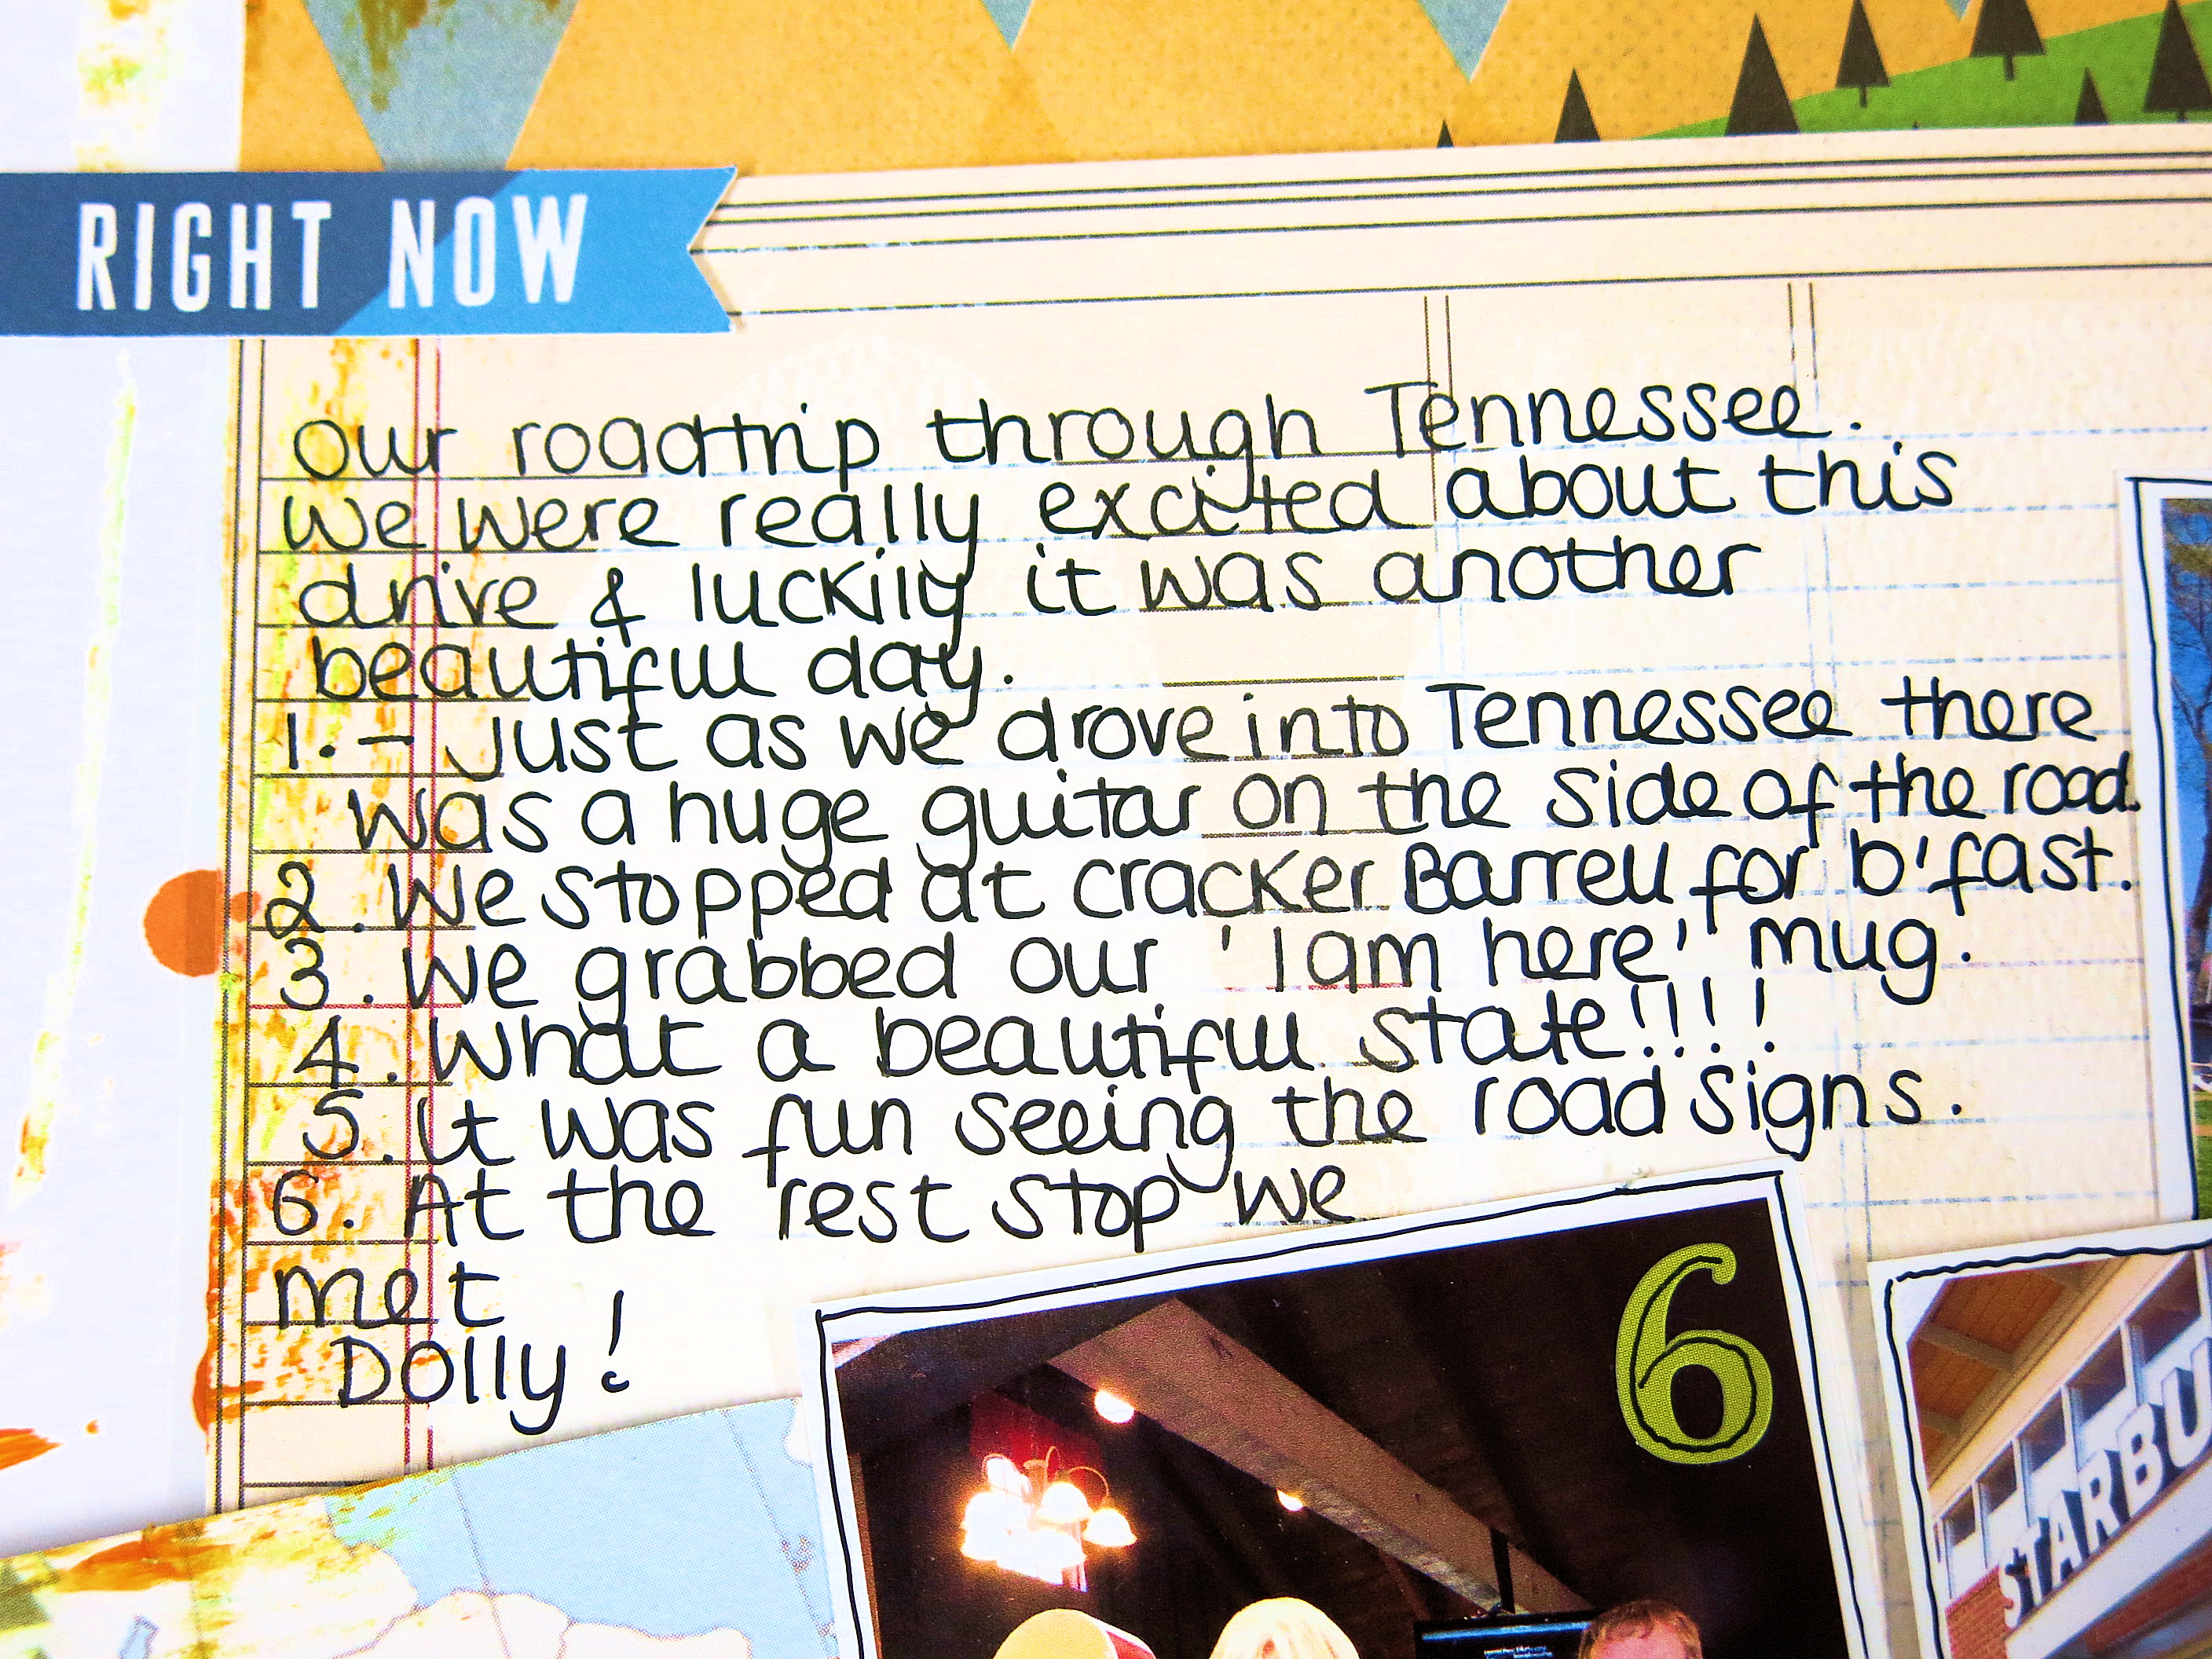 RIGHT NOW
our roadtrip through Tennessee.
We were really excited about this
drive & luckily it was another
beautiful day.
1. - Just as we drove into Tennessee there
was a huge guitar on the side of the road.
2. We stopped at cracker Barrell for b'fast.
3. We grabbed our 'I am here' mug.
4. What a beautiful state!!!!
5. It was fun seeing the road signs.
6. At the rest stop we
met
Dolly!
6
STARBU